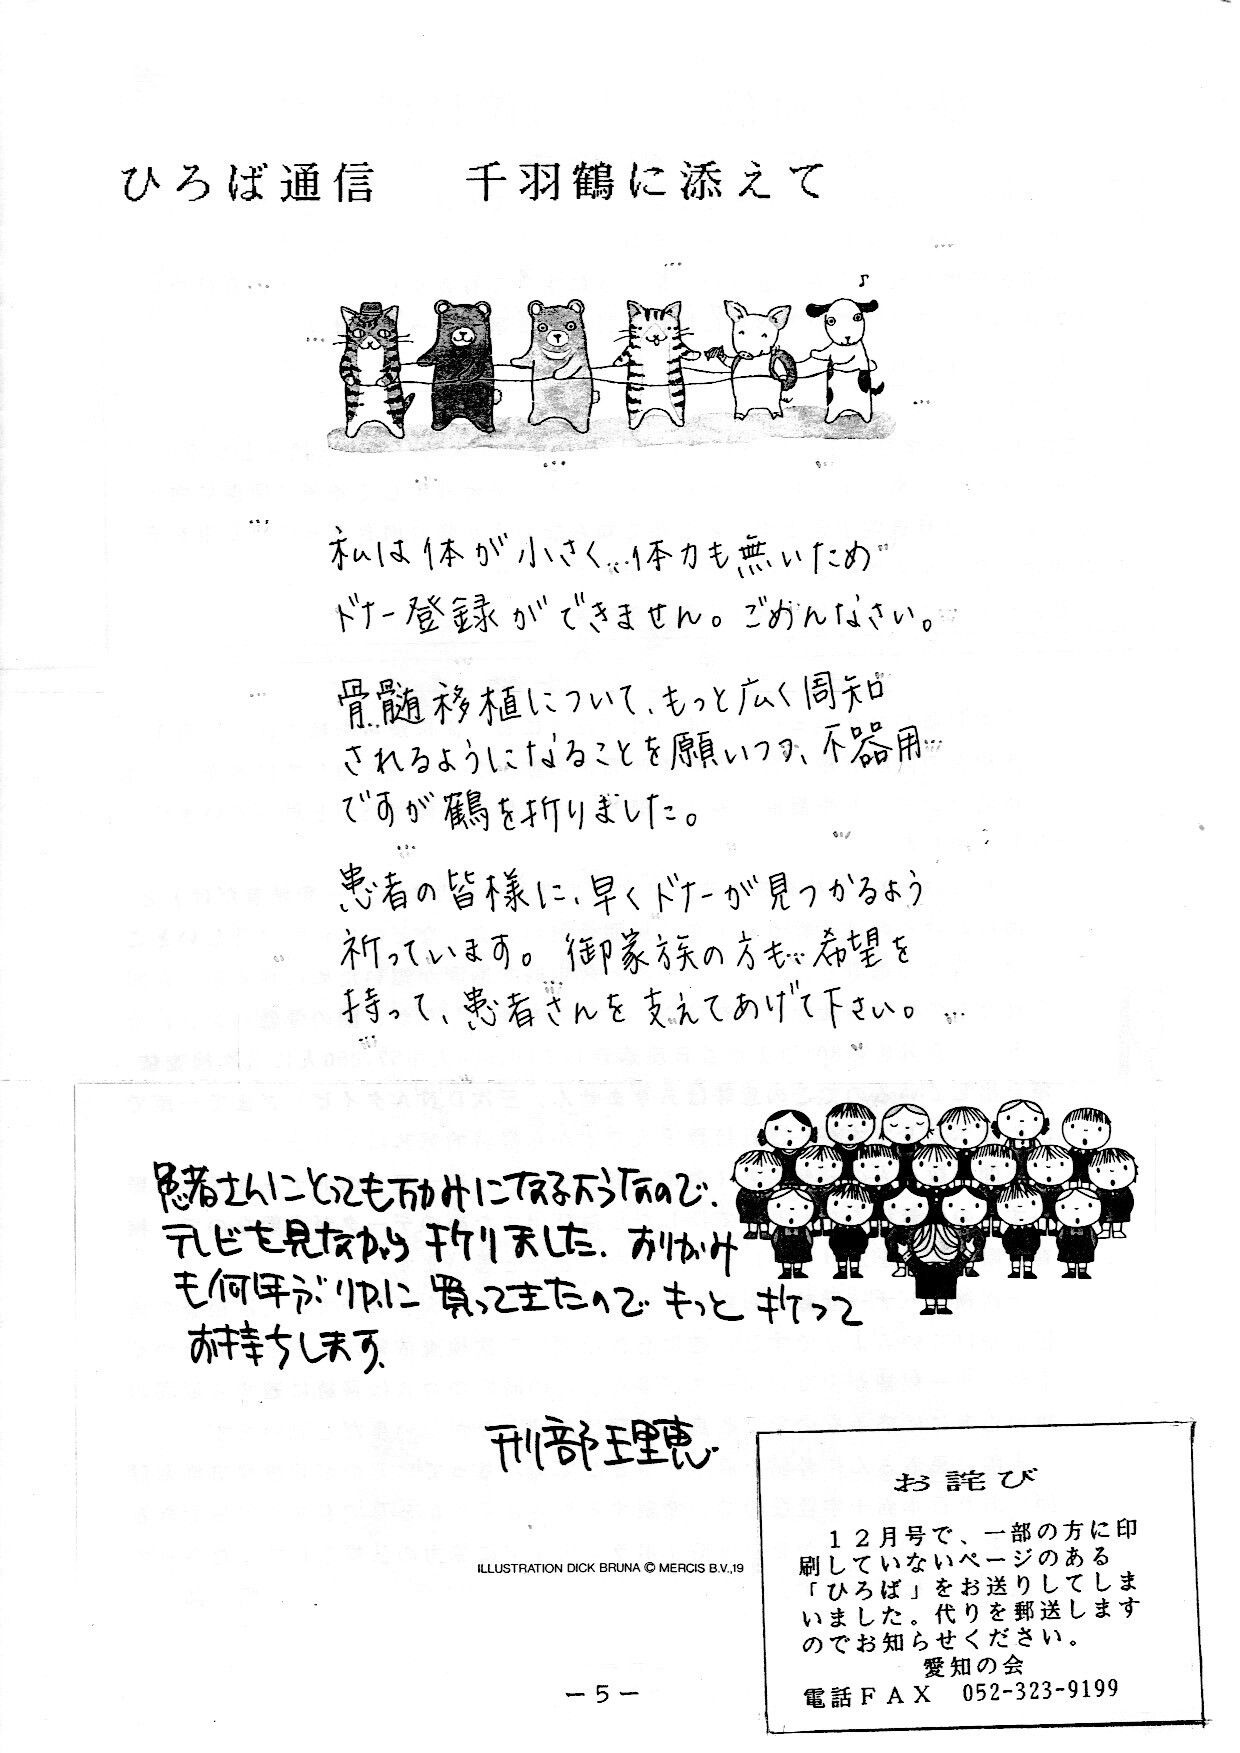 ひろば通信　千羽鶴に添えて
私は体が小さく、体力も無いため
ドナー登録ができません。ごめんなさい。
骨髄移植について、もっと広く周知
されるようになることを願いつつ、不器用
ですが鶴を折りました。
患者の皆様に、早くドナーが見つかるよう
祈っています。御家族の方も希望を
持って、患者さんを支えてあげて下さい。
患者さんにとっても励みになるようなので、
テレビを見ながら折りました。おりがみ
も何年ぶりかに買ってきたのでもっと折って
お持ちします。
刑部理恵
ILLUSTRATION DICK BRUNA © MERCIS B.V.,19
お詫び
12月号で、一部の方に印
刷していないページのある
「ひろば」をお送りしてしま
いました。代りを郵送します
のでお知らせください。
愛知の会
電話FAX 052-323-9199
－5－